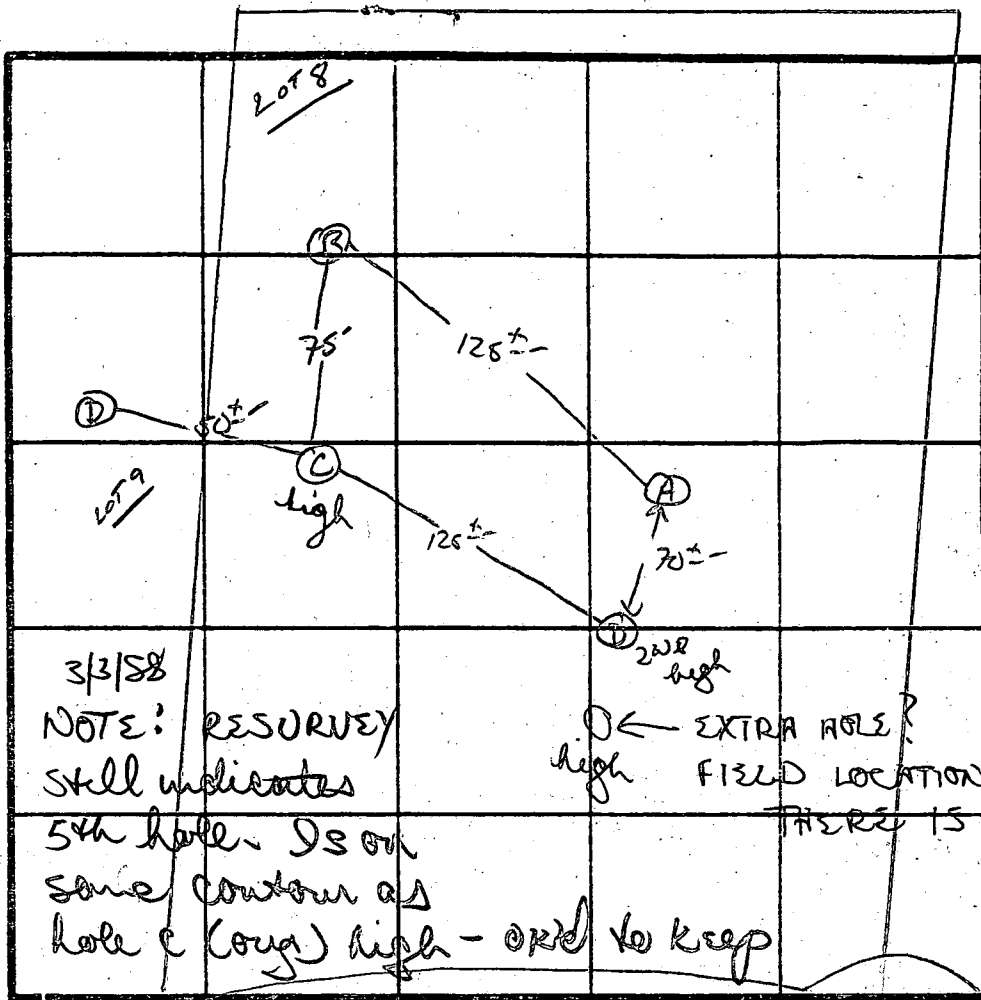 LOT 8
B
75'
125±
D
50±
C
high
LOT 9
125±
A
70±
D
2ND
high
3/3/88
NOTE: RESURVEY
still indicates
5th hole. Is on
same contour as
hole C (orig) high - OK'd to keep
← EXTRA HOLE?
high FIELD LOCATION
THERE IS